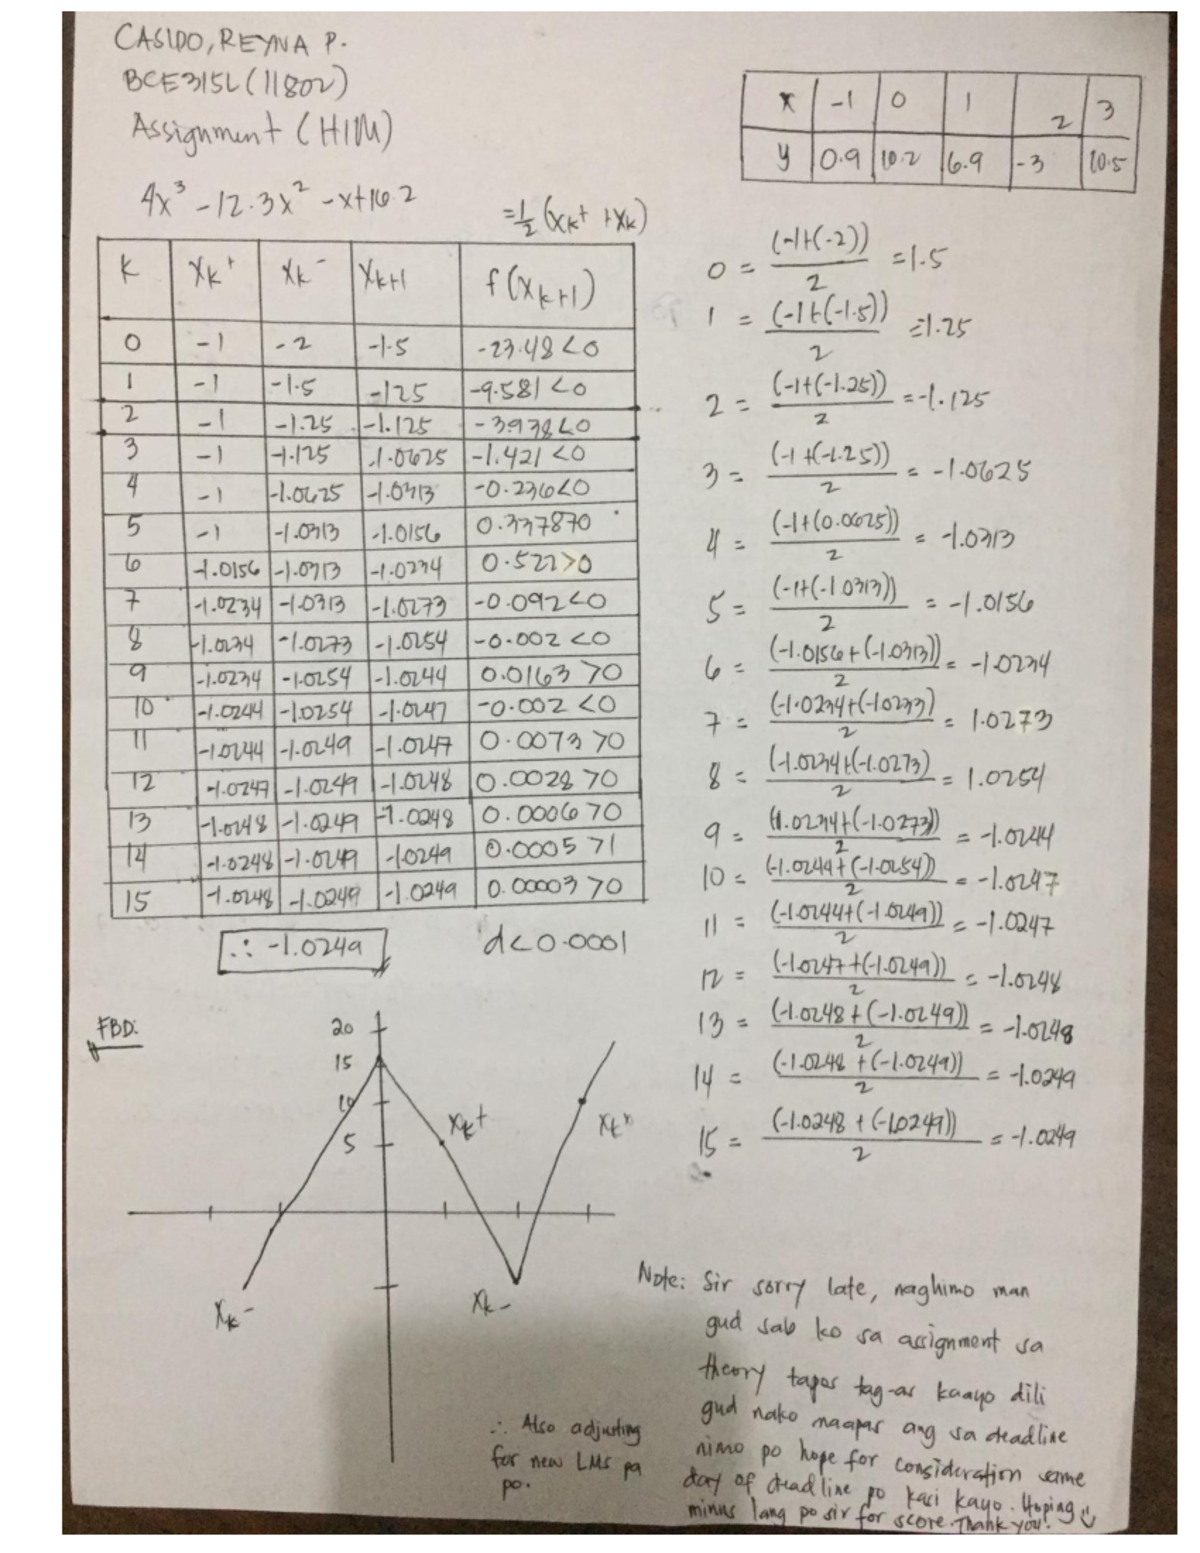 CASIDO, REYNA P.
BCE315L (11802)
Assignment (HIM)
x | -1 | 0 | 1 | 2 | 3
y | 0.9 | 10.2 | 6.9 | -3 | 10.5
4x³ -12.3x² -x+16.2
=½ (xk+ +xk)
K | xk+ | xk- | xk+1 | f(xk+1)
0 | -1 | -2 | -1.5 | -23.48<0
1 | -1 | -1.5 | -125 | -9.581<0
2 | -1 | -1.25 | -1.125 | -3.938<0
3 | -1 | -1.125 | -1.0625 | -1.421<0
4 | -1 | -1.0625 | -1.0313 | -0.236<0
5 | -1 | -1.0313 | -1.0156 | 0.337870
6 | -1.0156 | -1.0313 | -1.0234 | 0.522>0
7 | -1.0234 | -1.0313 | -1.0273 | -0.092<0
8 | -1.0234 | -1.0273 | -1.0254 | -0.002<0
9 | -1.0234 | -1.0254 | -1.0244 | 0.0163>0
10 | -1.0244 | -1.0254 | -1.0247 | -0.002<0
11 | -1.0244 | -1.0249 | -1.0247 | 0.0073>0
12 | -1.0247 | -1.0249 | -1.0248 | 0.0028>0
13 | -1.0248 | -1.0249 | -1.0248 | 0.0006>0
14 | -1.0248 | -1.0249 | -1.0249 | 0.0005>1
15 | -1.0248 | -1.0249 | -1.0249 | 0.00003>0
∴ -1.0249
d<0.0001
0 = (-1+(-2))/2 =1.5
1 = (-1+(-1.5))/2 =-1.25
2 = (-1+(-1.25))/2 = -1.125
3 = (-1+(-1.25))/2 = -1.0625
4 = (-1+(0.0625))/2 = -1.0313
5 = (-1+(-1.0313))/2 = -1.0156
6 = (-1.0156+(-1.0313))/2 = -1.0234
7 = (-1.0234+(-1.0233)/2 = 1.0273
8 = (-1.0234+(-1.0273)/2 = 1.0254
9 = (1.0234+(-1.0273))/2 = -1.0244
10 = (-1.0244+(-1.0254))/2 = -1.0247
11 = (-1.0244+(-1.0249))/2 = -1.0247
12 = (-1.0247+(-1.0249))/2 = -1.0248
13 = (-1.0248+(-1.0249))/2 = -1.0248
14 = (-1.0248+(-1.0249))/2 = -1.0249
15 = (-1.0248+(-1.0249))/2 = -1.0249
FBD:
20
15
10
5
xk+
xk-
xk-
Note: Sir sorry late, naghimo man
gud sab ko sa assignment sa
theory tapos tag-as kaayo dili
gud nako maapas ang sa deadline
nimo po hope for consideration same
day of deadline po kasi kayo. Hoping
minus lang po sir for score. Thank you!
∴ Also adjusting
for new LMS pa
po.